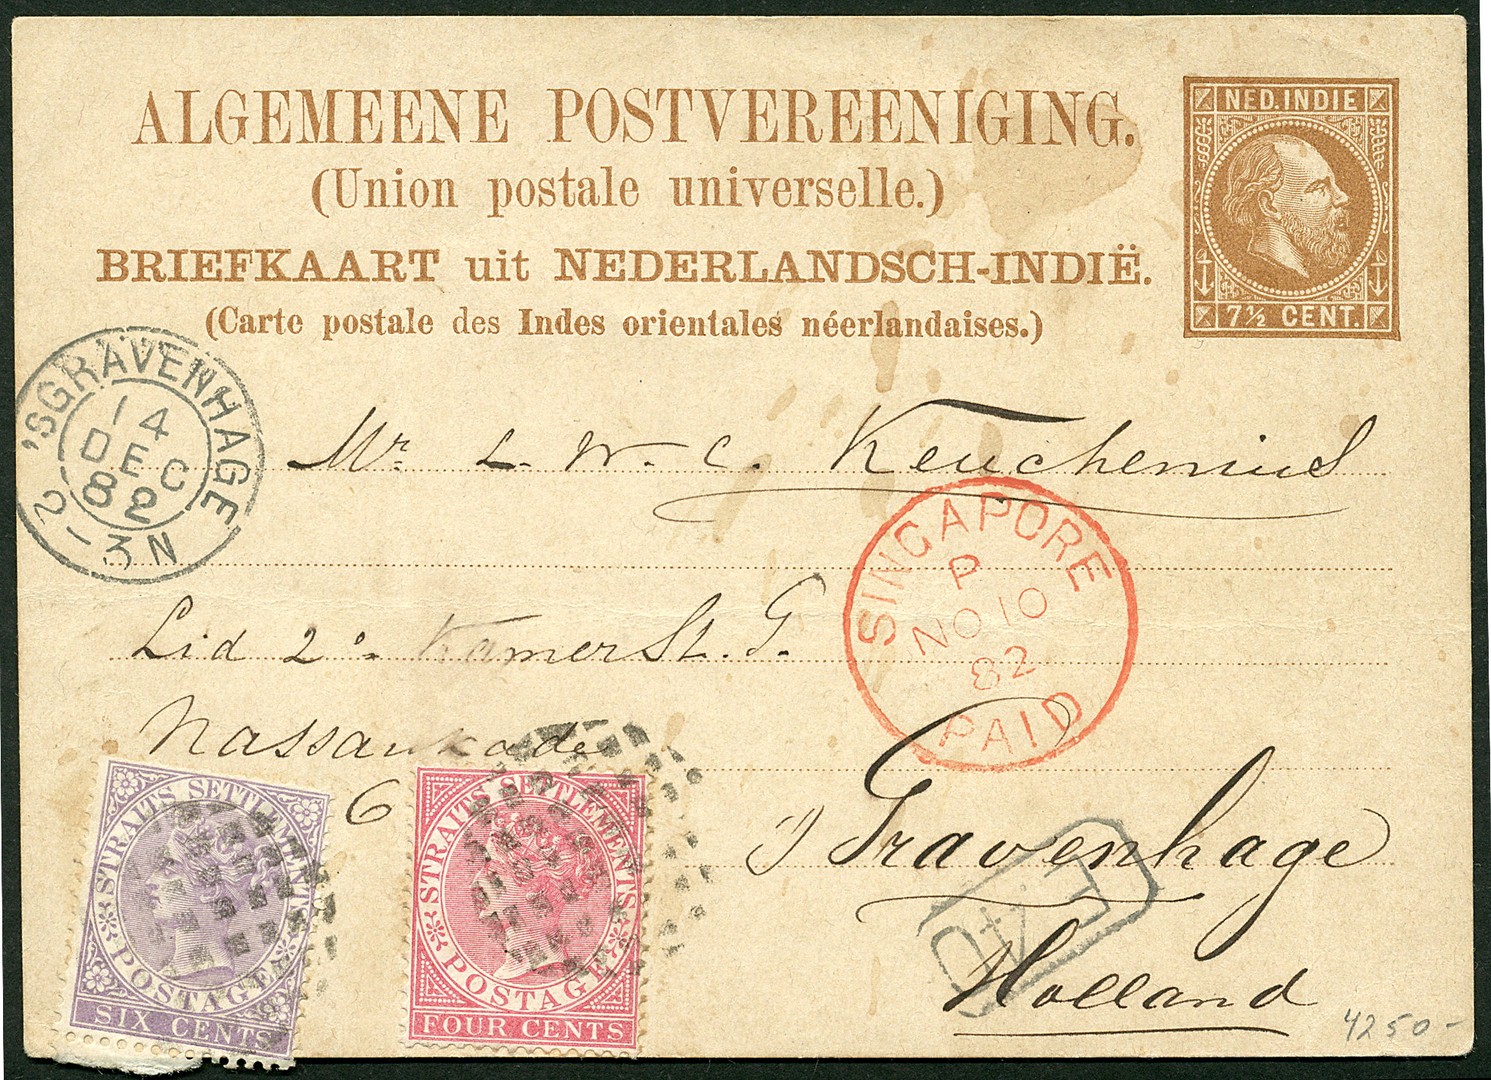 ALGEMEENE POSTVEREENIGING.
(Union postale universelle.)
BRIEFKAART uit NEDERLANDSCH-INDIË.
(Carte postale des Indes orientales néerlandaises.)
NED. INDIE
7½ CENT.
'SGRAVENHAGE
14
DEC
82
2-3N
Mr. L. W. C. Keuchenius
SINGAPORE
P
NO 10
82
PAID
Lid 2e Kamer St. G.
Nassaukade
6
's Gravenhage
Holland
STRAITS SETTLEMENTS
POSTAGE
SIX CENTS
STRAITS SETTLEMENTS
POSTAGE
FOUR CENTS
4250-